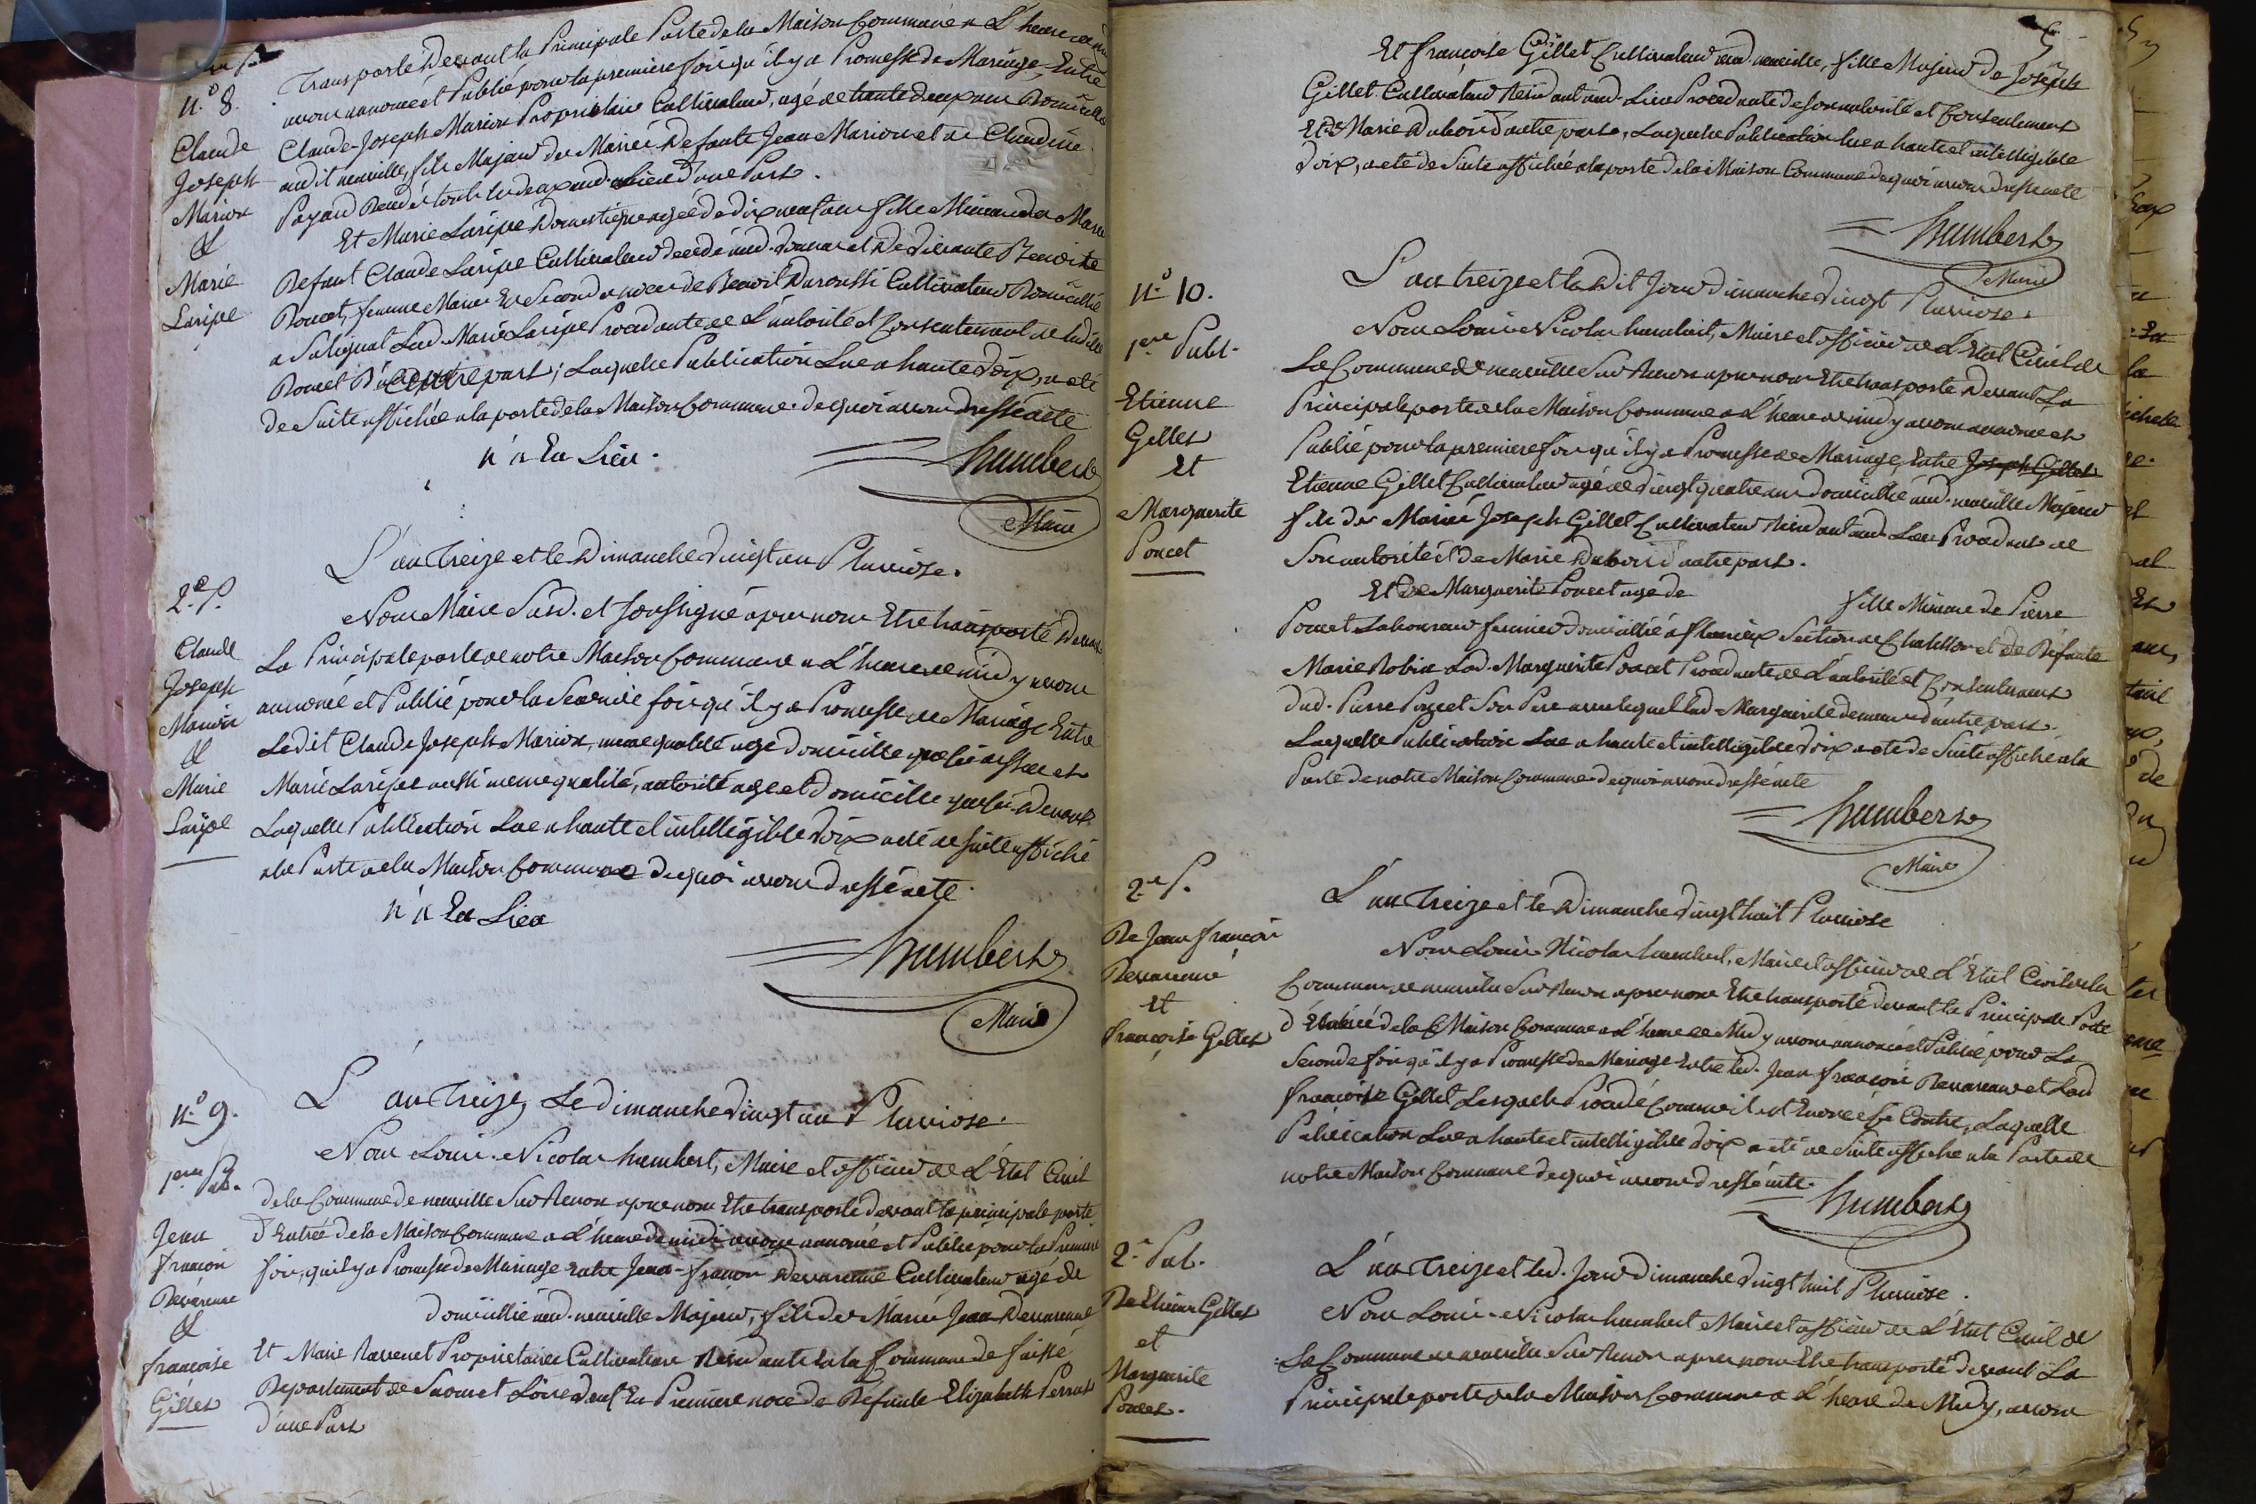 n.° 8.
Claude
Joseph
Marion
&
Marie
Laripe
Transporté Devant la Principale Porte de la Maison Commune a L'heure de
avons annoncé et Publié pour la premiere fois qu'il y a Promesse de Mariage, Entre
Claude-Joseph Marion Proprietaire Cultivateur, agé de trente deux ans Domicilié
audit neuville, fils Majeur des Mariés Defunts Jean Marion et de Claudine
Payand tout les deux aud. Lieu D'une Part.
Et Marie Laripe Domestique agée de dix neuf ans fille Mineure de
Defunt Claude Laripe Cultivateur decedé aud. et De vivante Benoite
Poncet, femme Mariée En Seconde noces de Benoit Cultivateur Domicilié
a Salignat Lad. Marie Laripe Procedante de L'autorité et Consentement de ladite
Poncet D'autre part; Laquelle Publication Lue a haute voix, a eté
de Suite affichée a la porte de la Maison Commune. de quoi avons dressé acte
n'a Eu Lieu.
humbert
Maire
2.e P.
Claude
Joseph
Marion
&
Marie
Laripe
L'an Treize et le Dimanche vingt un Pluviose.
Nous Maire Susd. et soussigné apres nous Etre transporté Devant
La Principale porte de notre Maison Commune a L'heure de midy avons
annoncé et Publié pour la Seconde fois qu'il y a Promesse de Mariage Entre
Ledit Claude Joseph Marion, meme qualité age domicille que cy dessus et
Marie Laripe aussi meme qualité, autorité age et domicille que cy Devant
Laquelle Publication Lue a haute et intelligible voix a eté de suite affiché
a la Porte de la Maison Commune de quoi avons dressé acte.
n'a Eu Lieu
humbert
Maire
n.° 9.
1ere Pub.
Jean
françois
Devarenne
&
françoise
Gillet
L'an Treize, Le dimanche vingt un Pluviose.
Nous Louis-Nicolas humbert, Maire et officier de L'Etat Civil
de la Commune de neuville Sur Renon apres nous Etre transporté devant la principale porte
d'Entrée de la Maison Commune a L'heure de midi avons annoncé et Publié pour la Premiere
fois, qu'il y a Promesse de Mariage entre Jean-françois Devarenne Cultivateur agé de
domicillié aud. neuville Majeur, fils des Mariés Jean Devarenne
Et Marie Ravenet Proprietaires Cultivateurs Residants En la Commune de
Departement de Saone et Loire veuf En Premiere noce de Defunte Elizabeth Perrat
d'une Part
Et françoise Gillet Cultivateur aud. neuville, fille Majeure de Joseph
Gillet Cultivateur Residant aud. Lieu Procedante de son autorité et Consentement
Et de Marie Dubois D'autre part, Laquelle Publication lue a haute et intelligible
voix, a eté de Suite affichée a la porte de la Maison Commune de quoi avons dressé acte
humbert
Maire
n.° 10.
1ere Publ.
Etienne
Gillet
Et
Marguerite
Poncet
L'an treize et le Dit Jour dimanche vingt Pluviose.
Nous Louis-Nicolas humbert, Maire et officier de L'Etat Civil de
La Commune de neuville Sur Renon apres nous Etre transporté devant La
Principale porte de la Maison Commune a L'heure de midy avons annoncé et
Publié pour la premiere fois qu'il y a Promesse de Mariage Entre Joseph Gillet
Etienne Gillet Cultivateur agé de vingt quatre ans domicillié aud. neuville Majeur
fils des Mariés Joseph Gillet Cultivateur Residant aud. Lieu Procedant de
Son autorité et de Marie Dubois d'autre part.
Et De Marguerite Poncet agée de fille Mineure de Pierre
Poncet Laboureur fermier domicillié a flurieux Section de Chatillon et de Defunte
Marie Robin Lad. Marguerite Poncet Procedante de L'autorité et Consentement
dud. Pierre Poncet Son Pere avec lequel Lad. Marguerite demeure d'autre part.
Laquelle Publication Lue a haute et intelligible voix a eté de Suite affiché a la
Porte de notre Maison Commune de quoi avons dressé acte
humbert
Maire
2.e P.
De Jean françois
Devarenne
Et
françoise Gillet
L'an Treize et le Dimanche vingt huit Pluviose
Nous Louis Nicolas humbert, Maire et officier de L'Etat Civil de la
Commune de neuville Sur Renon apres nous Etre transporté devant la Principale Porte
d'Entrée de la Maison Commune a L'heure de Midy avons annoncé et Publié pour La
Seconde fois qu'il y a Promesse de Mariage Entre led. Jean françois Devarenne et Lad
françoise Gillet Lesquels Procedé Comme il est Enoncé Cy Contre, Laquelle
Publication Lue a haute et intelligible voix a eté de Suite affiché a la Porte de
notre Maison Commune de quoi avons dressé acte.
humbert
2.e Pub.
De Etienne Gillet
et
Marguerite
Poncet.
L'an Treize et led. Jour dimanche vingt huit Pluviose.
Nous Louis-Nicolas humbert Maire et officier de L'Etat Civil de
La Commune de neuville Sur Renon apres nous Etre transporté devant La
Principale porte de la Maison Commune a L'heure de Midy, avons